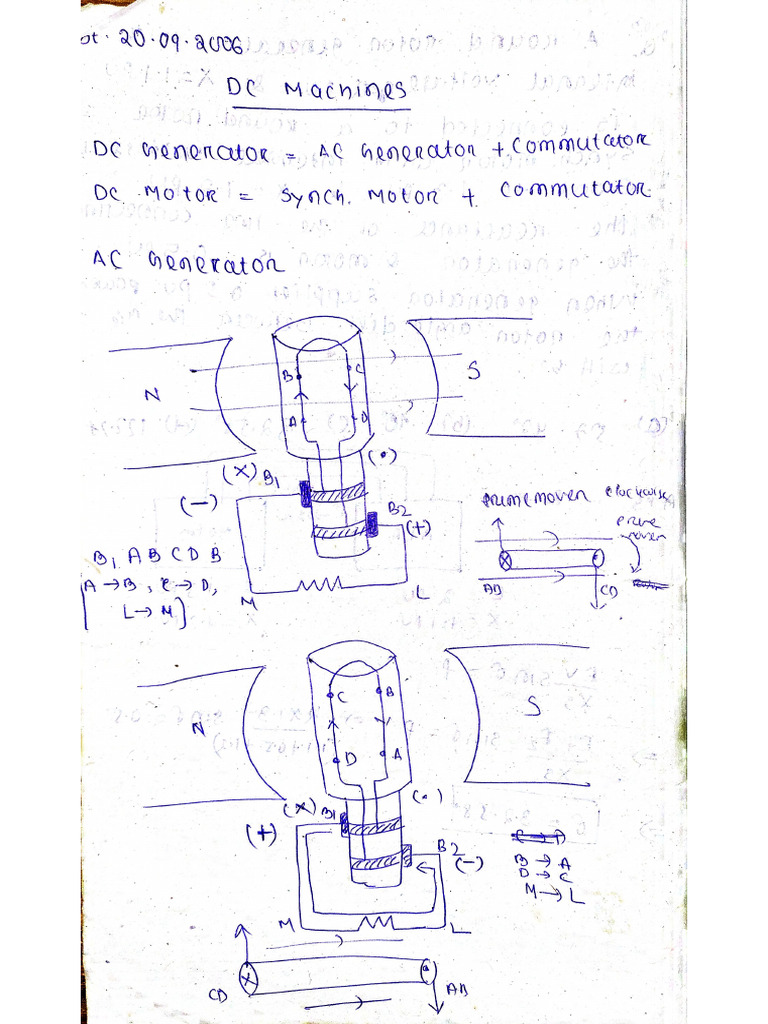 Dt. 20.09.2006
DC Machines
DC Generator = AC Generator + Commutator
DC Motor = Synch. Motor + Commutator
AC Generator
N
S
B
C
A
D
(X)
B1
(•)
(-)
B2
(+)
M
L
B1 A B C D B
A→B, C→D,
L→M]
prime mover clockwise
prime mover
AB
CD
N
S
C
B
D
A
(X)
B1
(•)
(+)
B2
(-)
M
L
C→D
B→A
D→C
M→L
CD
AB